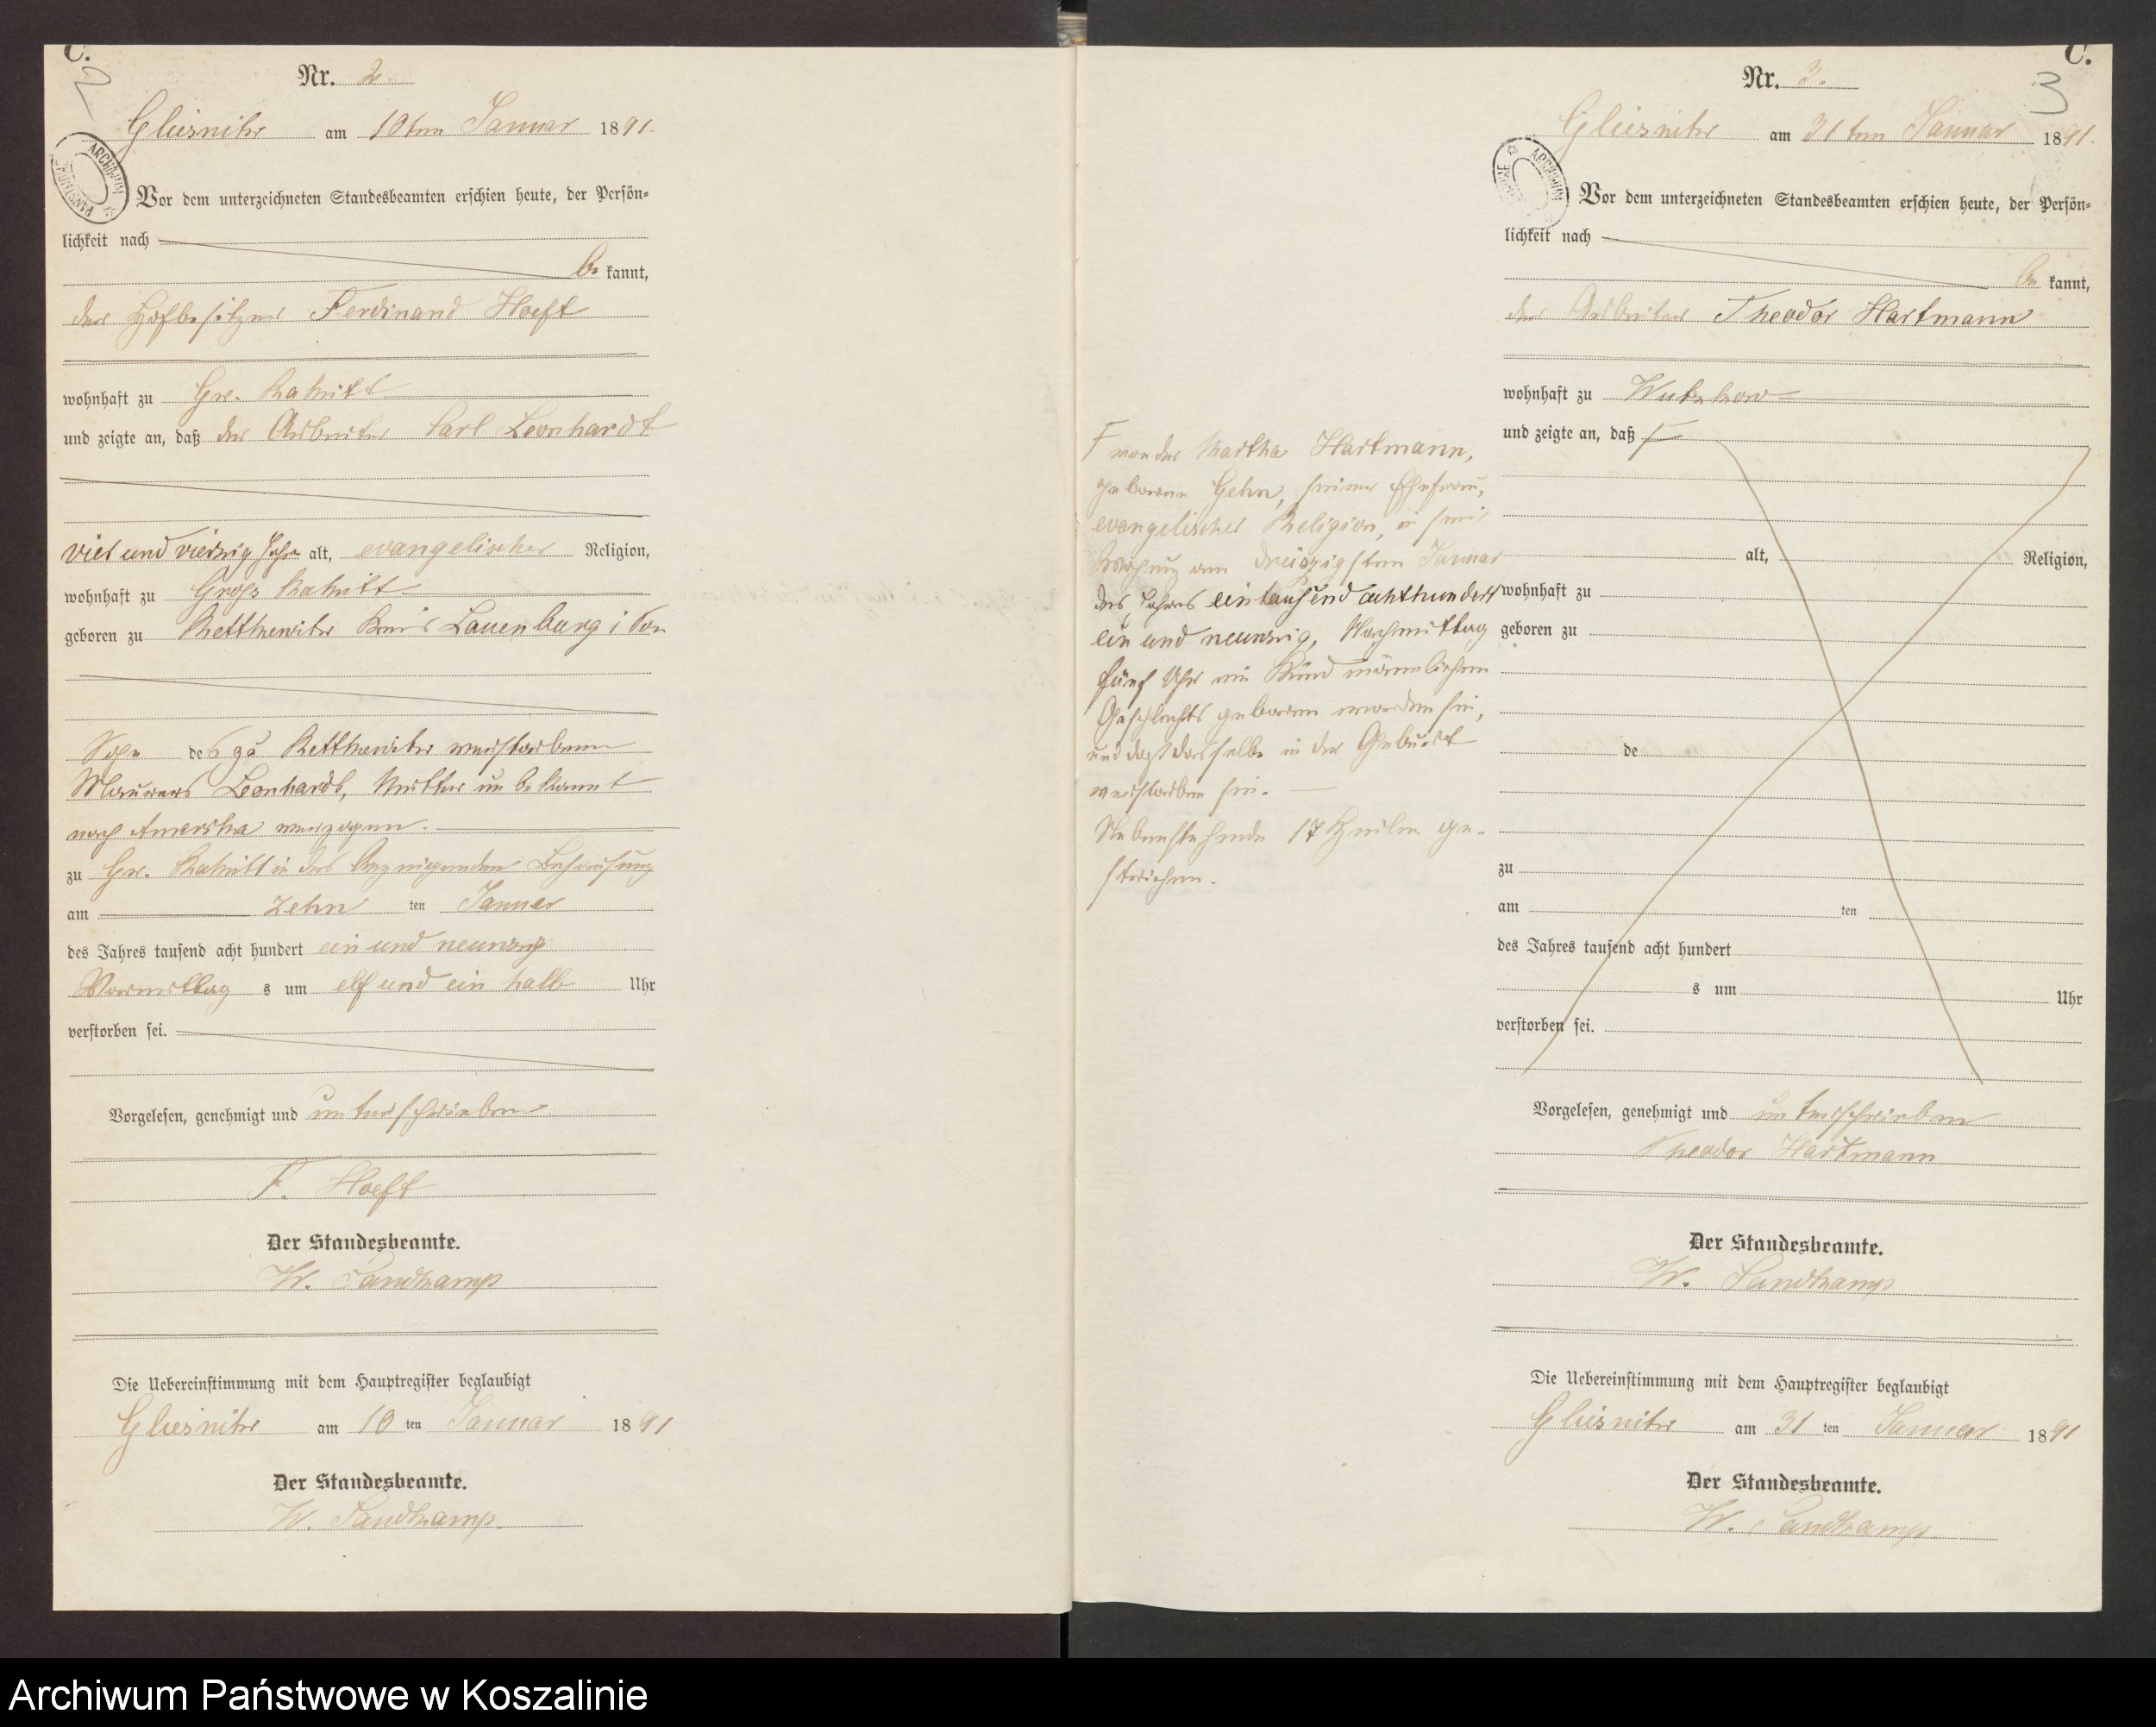 C.
2
Nr. 2.
Gliesnitz am 10ten Januar 1891.
ARCHIWUM PAŃSTWOWE
Vor dem unterzeichneten Standesbeamten erschien heute, der Persön-
lichkeit nach
be kannt,
der Hofbesitzer Ferdinand Hoeft
wohnhaft zu Gr. Rakitt
und zeigte an, daß der Arbeiter Carl Leonhardt
vier und vierzig Jahre alt, evangelischer Religion,
wohnhaft zu Groß Rakitt
geboren zu Rettkewitz Kreis Lauenburg i Pom
Sohn des zu Rettkewitz verstorbenen
Maurers Leonhardt, Mutter unbekannt
nach Amerika verzogen.
zu Gr. Rakitt in des Anzeigenden Behausung
am zehn ten Januar
des Jahres tausend acht hundert ein und neunzig
Vormittag s um elf und ein halb Uhr
verstorben sei.
Vorgelesen, genehmigt und unterschrieben
F. Hoeft
Der Standesbeamte.
W. Sandkamp
Die Uebereinstimmung mit dem Hauptregister beglaubigt
Gliesnitz am 10 ten Januar 1891
Der Standesbeamte.
W. Sandkamp.
C.
3
Nr. 3.
Gliesnitz am 31ten Januar 1891.
ARCHIWUM
Vor dem unterzeichneten Standesbeamten erschien heute, der Persön-
lichkeit nach
be kannt,
der Arbeiter Theodor Hartmann
wohnhaft zu Wutzkow
und zeigte an, daß F
alt, Religion,
wohnhaft zu
geboren zu
de
zu
am ten
des Jahres tausend acht hundert
s um Uhr
verstorben sei.
F von der Martha Hartmann,
geborene Gehn, seiner Ehefrau,
evangelischer Religion, in seiner
Wohnung am dreißigsten Januar
des Jahres eintausend achthundert
ein und neunzig, Nachmittag
fünf Uhr ein Kind männlichen
Geschlechts geboren worden sei,
und daß dasselbe in der Geburt
verstorben sei.
Nebenstehende 17 Zeilen ge-
strichen.
Vorgelesen, genehmigt und unterschrieben
Theodor Hartmann
Der Standesbeamte.
W. Sandkamp
Die Uebereinstimmung mit dem Hauptregister beglaubigt
Gliesnitz am 31 ten Januar 1891
Der Standesbeamte.
W. Sandkamp.
Archiwum Państwowe w Koszalinie